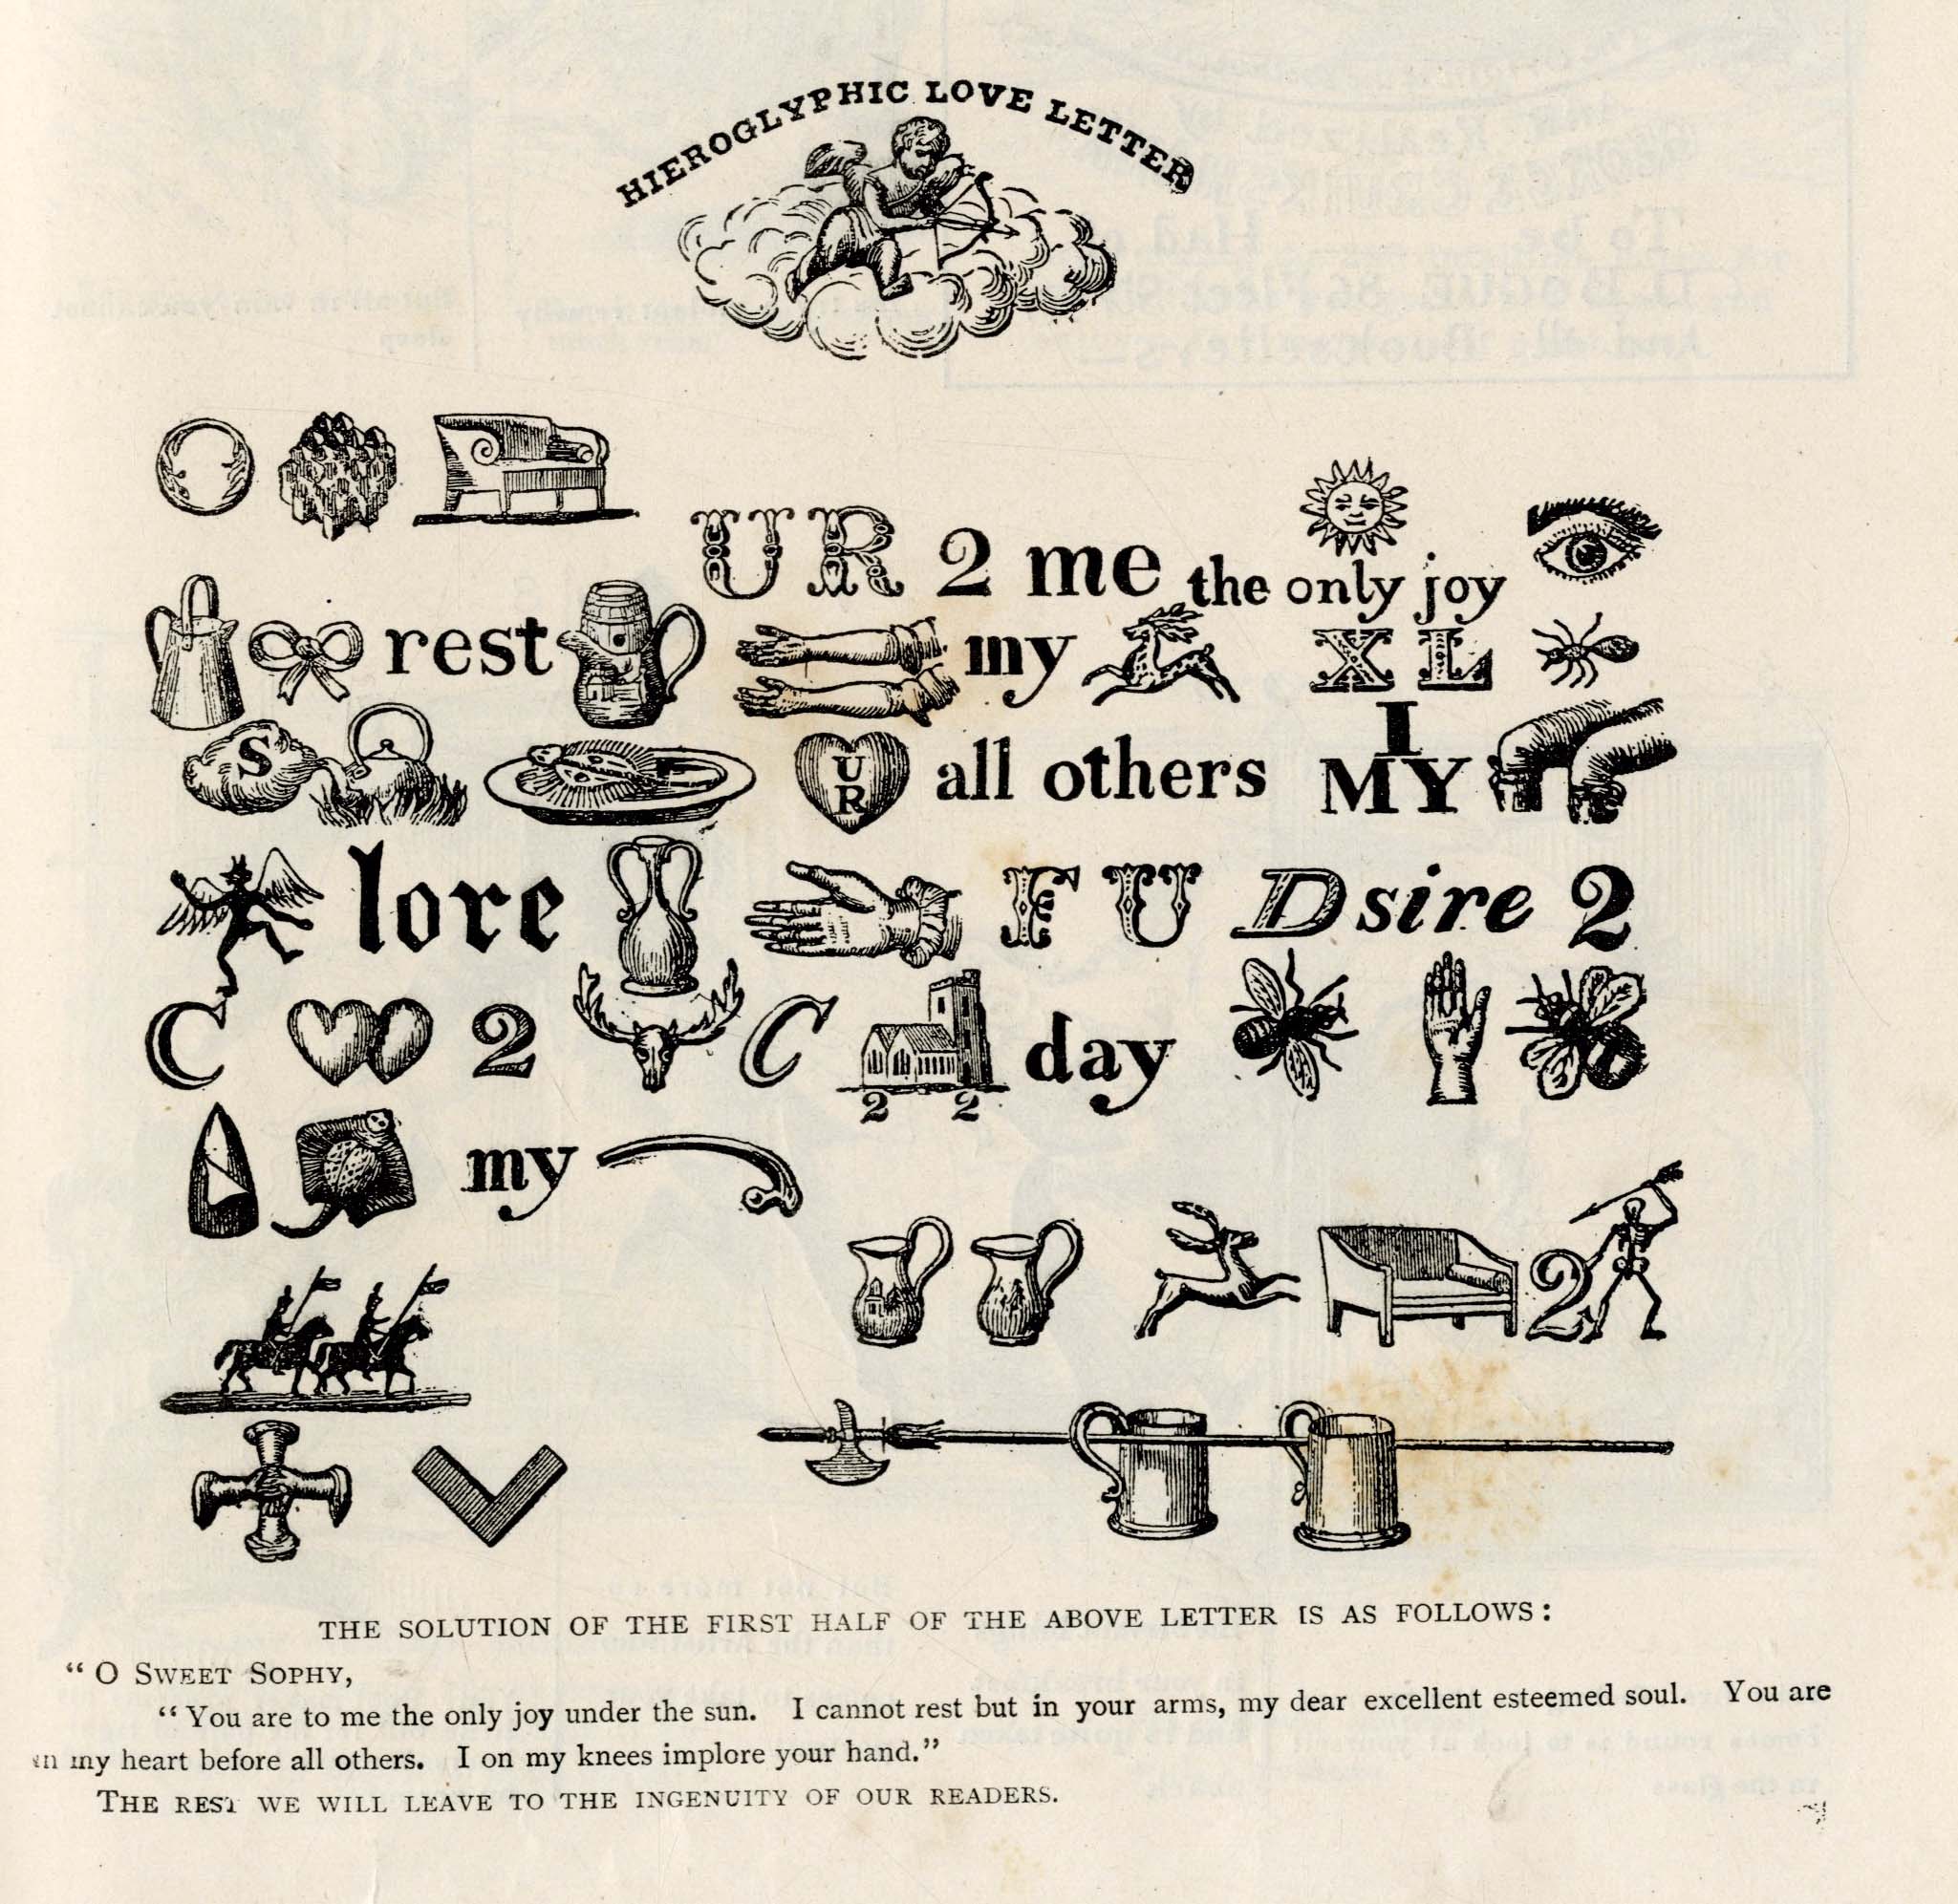 HIEROGLYPHIC LOVE LETTER
UR 2 me the only joy
rest my XL
S UR all others I MY
lore F U Dsire 2
C 2 C day
2 2
my
2
THE SOLUTION OF THE FIRST HALF OF THE ABOVE LETTER IS AS FOLLOWS:
“O SWEET SOPHY,
“You are to me the only joy under the sun. I cannot rest but in your arms, my dear excellent esteemed soul. You are
in my heart before all others. I on my knees implore your hand.”
THE REST WE WILL LEAVE TO THE INGENUITY OF OUR READERS.